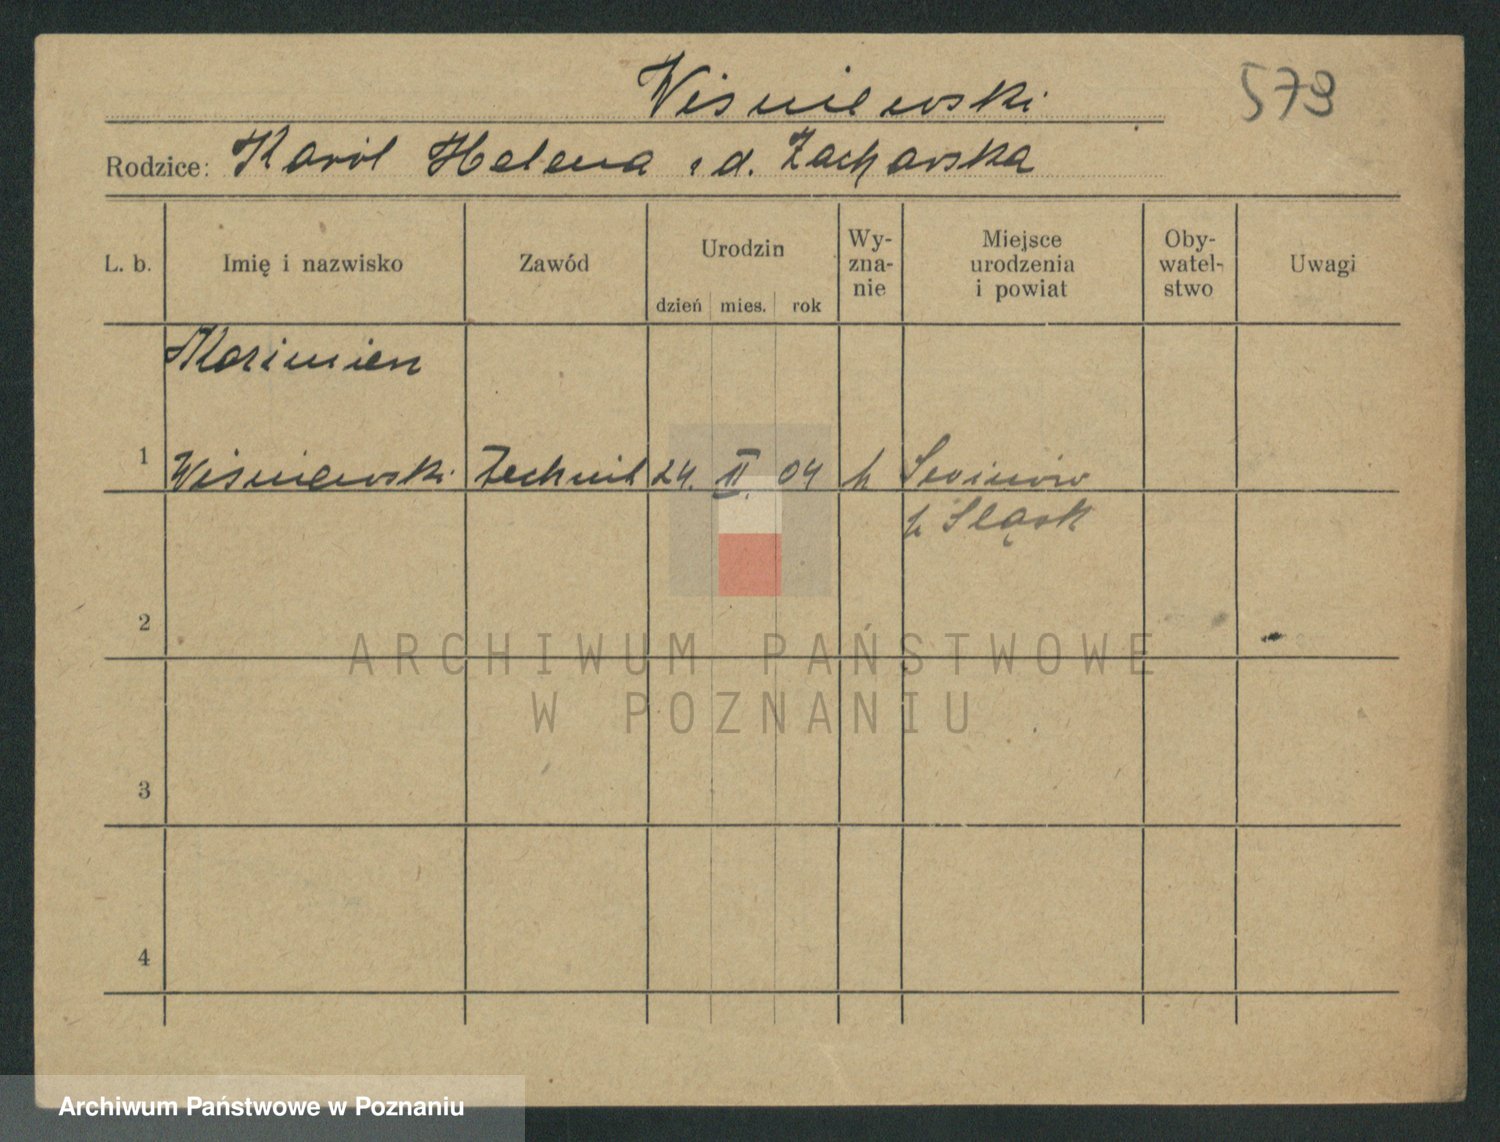 Wiśniewski
573
Rodzice: Karol Helena z d. Zacharska
L. b. Imię i nazwisko Zawód Urodzin dzień mies. rok Wy- zna- nie Miejsce urodzenia i powiat Oby- watel- stwo Uwagi
1 Wiśniewski Technik 24. II. 04
Śląsk
2
3
4
ARCHIWUM PAŃSTWOWE
W POZNANIU
Archiwum Państwowe w Poznaniu